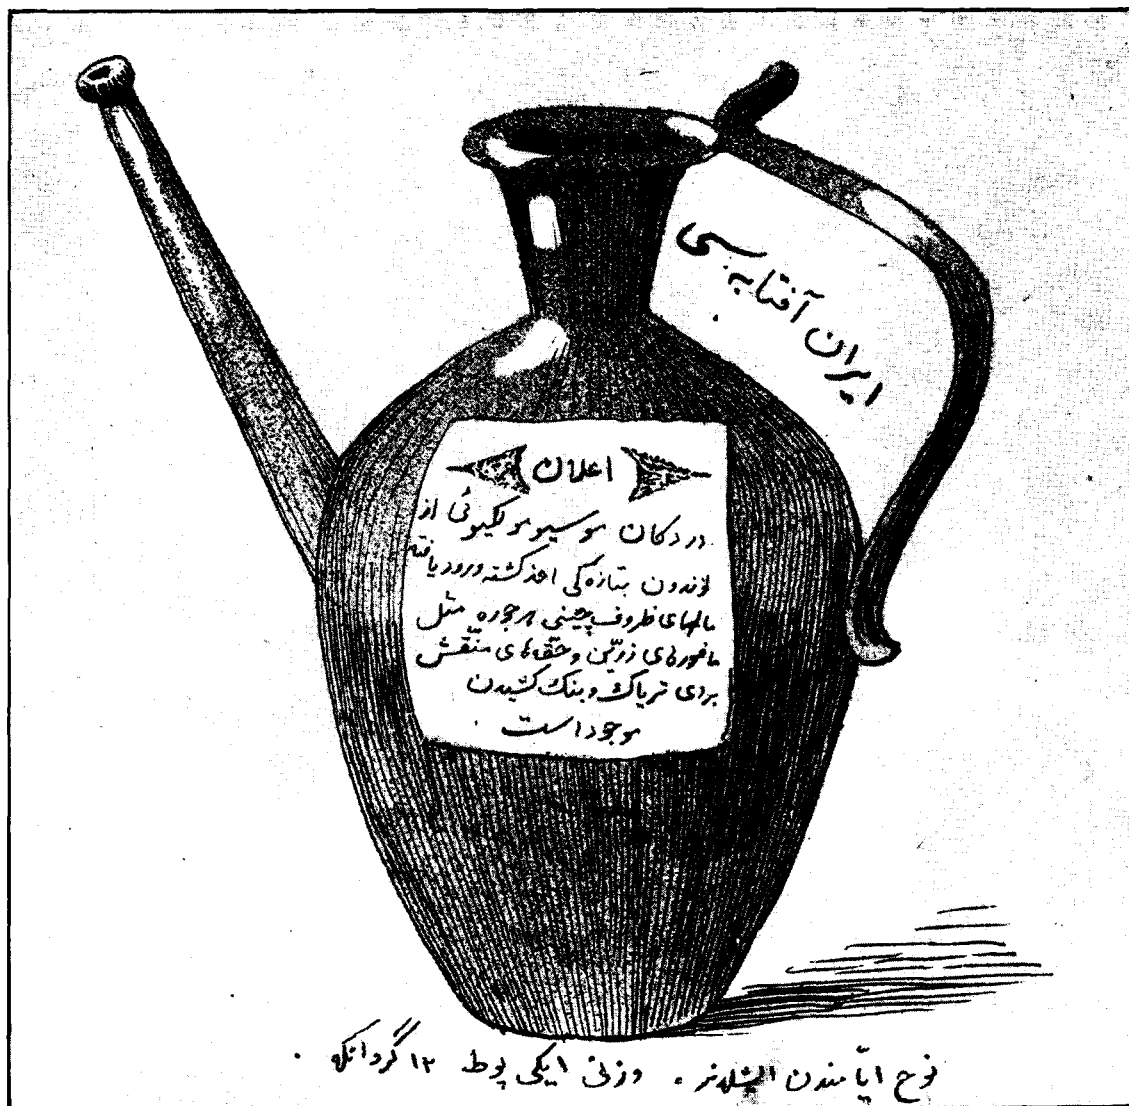 ایران آفتابه‌سی
اعلان
در دکان موسیو مولکیوئی از
لوندون بتازه‌گی اخذ گشته ورود یافته
مالهای ظروف چینی هرجوره مثل
مافورهای زرین و حقه‌های منقش
بردی تریاک و بنک کشیدن
موجود است
نوح ایامندن ایشلدنر . وزنی ایکی پوط ۱۲ گروانکه .